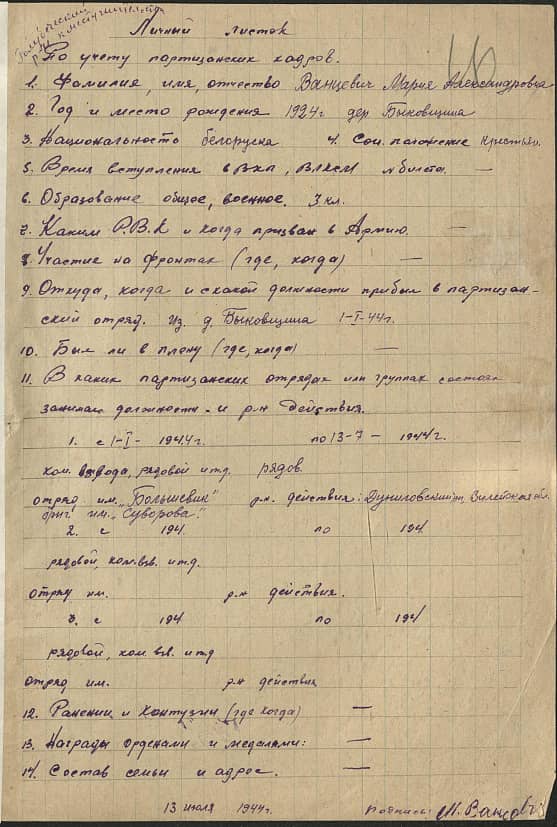 Личный листок
По учету партизанских кадров.
1. Фамилия, имя, отчество Ванцевич Мария Александровна
2. Год и место рождения 1924г. дер. Быковщина
3. Национальность белоруска 4. Соц. положение крестьян.
5. Время вступления в ВКП, ВЛКСМ № билета. —
6. Образование общее, военное. 3 кл.
7. Каким Р.В.К и когда призван в Армию. —
8. Участие на фронтах (где, когда) —
9. Откуда, когда и с какой должности прибыл в партизан-
ский отряд. Из д. Быковщина 1-I-44г.
10. Был ли в плену (где, когда) —
11. В каких партизанских отрядах или группах состоял
занимал должность и р-н действия.
1. с 1-I- 1944г. по 13-7- 1944г.
ком. взвода, рядовой и т.д. рядов.
отряд им. "Большевик" р.н. действия: Дуниловский р-н, Вилейская обл.
бриг. им. "Суворова".
2. с 194 по 194
рядовой, ком. взв. и т.д.
отряд им. р-н действия.
3. с 194 по 194
рядовой, ком. взв. и т.д
отряд им. р-н действия
12. Ранении и контузии (где когда) —
13. Награды орденами и медалями: —
14. Состав семьи и адрес. —
13 июля 1944г. Подпись: М. Ванцевич